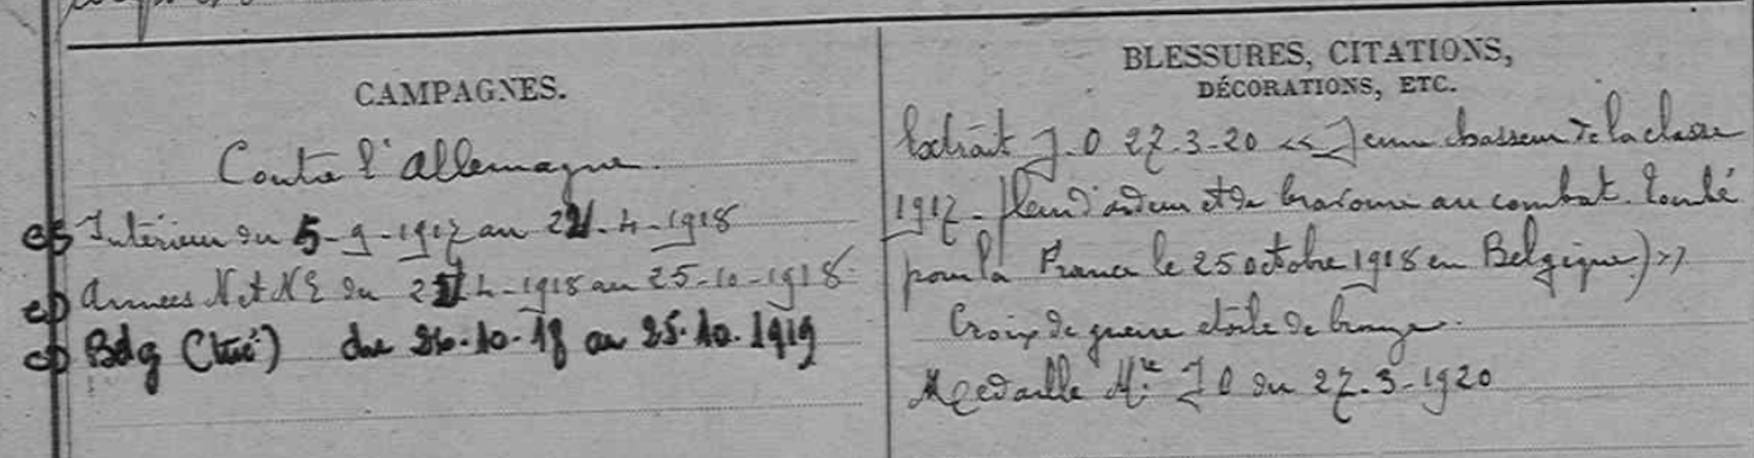 CAMPAGNES.
Contre l'Allemagne.
CS Intérieur du 5-9-1917 au 21-4-1918
CD Armées N et NE du 22-4-1918 au 25-10-1918
CD Bdg (tué) du 26.10.18 au 25.10.1919
BLESSURES, CITATIONS,
DÉCORATIONS, ETC.
Extrait J.O 27.3-20 << Jeune chasseur de la classe
1917 - plein d'ardeur et de bravoure au combat. Tombé
pour la France le 25 octobre 1918 en Belgique) >>
Croix de guerre etoile de bronze.
Medaille Mre JO du 27.3-1920